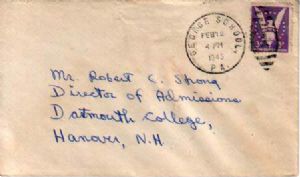 GEORGE SCHOOL,
FEB 12
4 PM
1945
PA.
Mr. Robert C. Strong
Director of Admissions
Dartmouth College,
Hanover, N.H